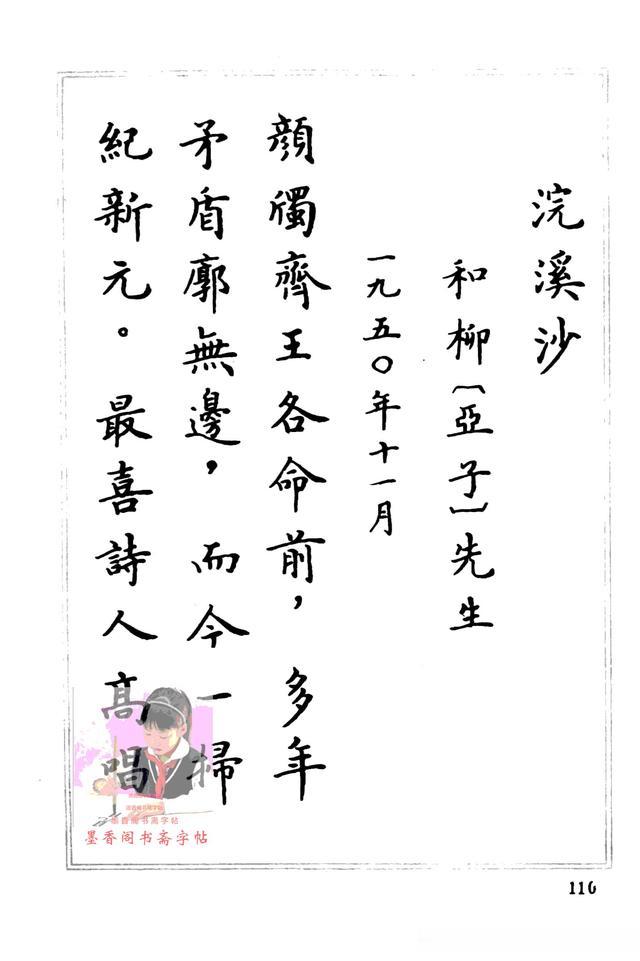 浣溪沙
和柳〔亞子〕先生
一九五〇年十一月
顔斶齊王各命前，多年
矛盾廓無邊，而今一掃
紀新元。最喜詩人高唱
墨香阁书斋字帖
墨香阁书斋字帖
116